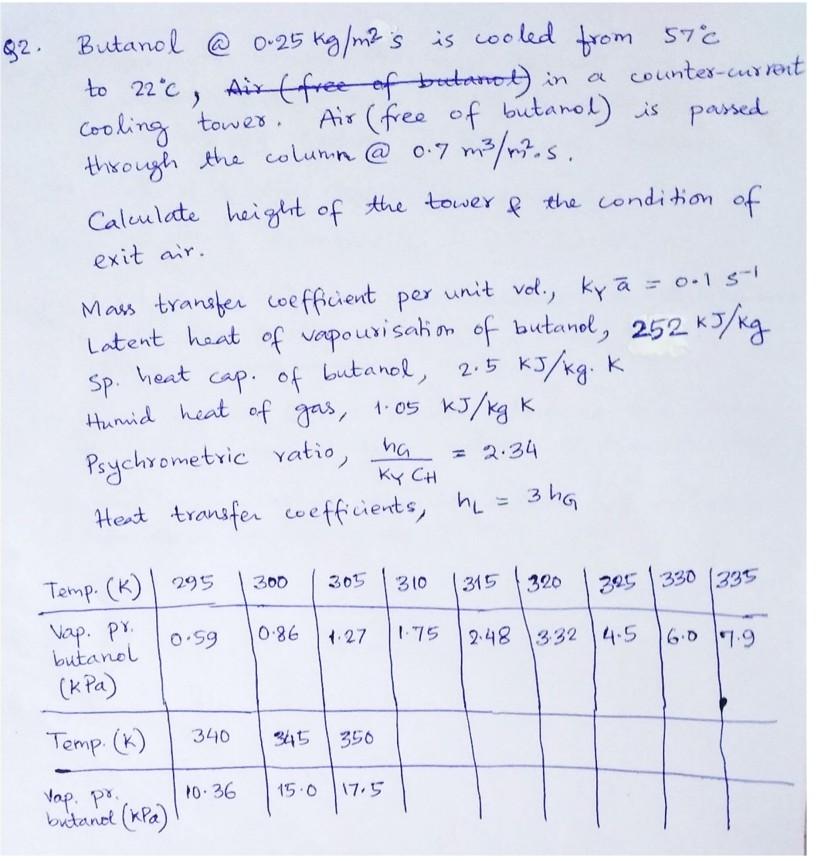 Q2. Butanol @ 0.25 kg/m² s is cooled from 57°C
to 22°C, Air (free of butanol) in a counter-current
cooling tower. Air (free of butanol) is passed
through the column @ 0.7 m³/m².s.
Calculate height of the tower & the condition of
exit air.
Mass transfer coefficient per unit vol., kY ā = 0.1 s⁻¹
Latent heat of vapourisation of butanol, 252 kJ/kg
Sp. heat cap. of butanol, 2.5 kJ/kg. K
Humid heat of gas, 1.05 kJ/kg K
Psychrometric ratio, hG / KY CH = 2.34
Heat transfer coefficients, hL = 3 hG
Temp. (K) 295 300 305 310 315 320 325 330 335
Vap. pr. butanol (kPa) 0.59 0.86 1.27 1.75 2.48 3.32 4.5 6.0 7.9
Temp. (K) 340 345 350
Vap. pr. butanol (kPa) 10.36 15.0 17.5